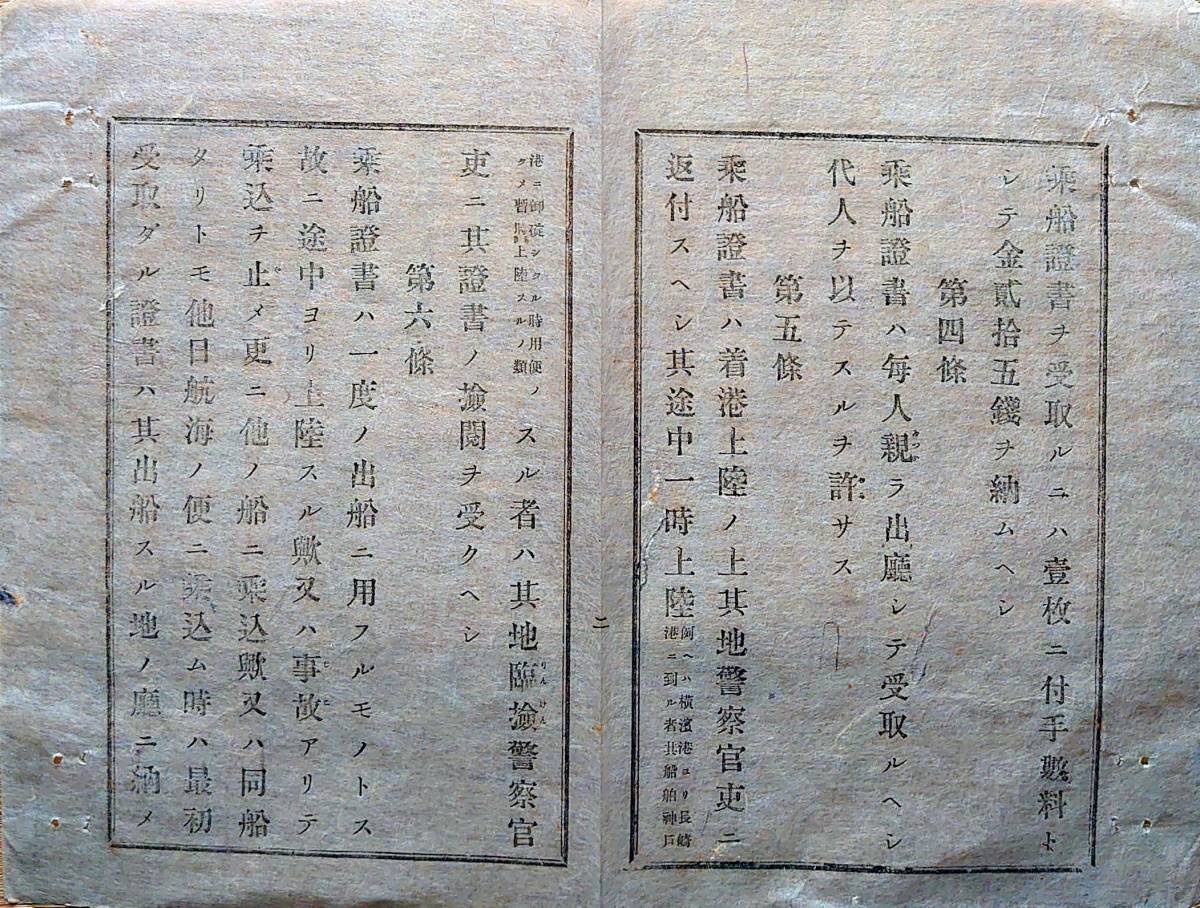 乘船證書ヲ受取ルニハ壹枚ニ付手數料ト
シテ金貳拾五錢ヲ納ムヘシ
第四條
乘船證書ハ毎人親ラ出廳シテ受取ルヘシ
代人ヲ以テスルヲ許サス
第五條
乘船證書ハ着港上陸ノ上其地警察官吏ニ
返付スヘシ其途中一時上陸
例ヘハ横濱港ヨリ長崎
港ニ到ル者其船舶神戸
二
港ニ卸碇シタル時用便ノ
タメ暫時上陸スルノ類
スル者ハ其地臨撿警察官
吏ニ其證書ノ撿閲ヲ受クヘシ
第六條
乘船證書ハ一度ノ出船ニ用フルモノトス
故ニ途中ヨリ上陸スル歟又ハ事故アリテ
乘込ヲ止メ更ニ他ノ船ニ乘込歟又ハ同船
タリトモ他日航海ノ便ニ乘込ム時ハ最初
受取タル證書ハ其出船スル地ノ廳ニ納メ